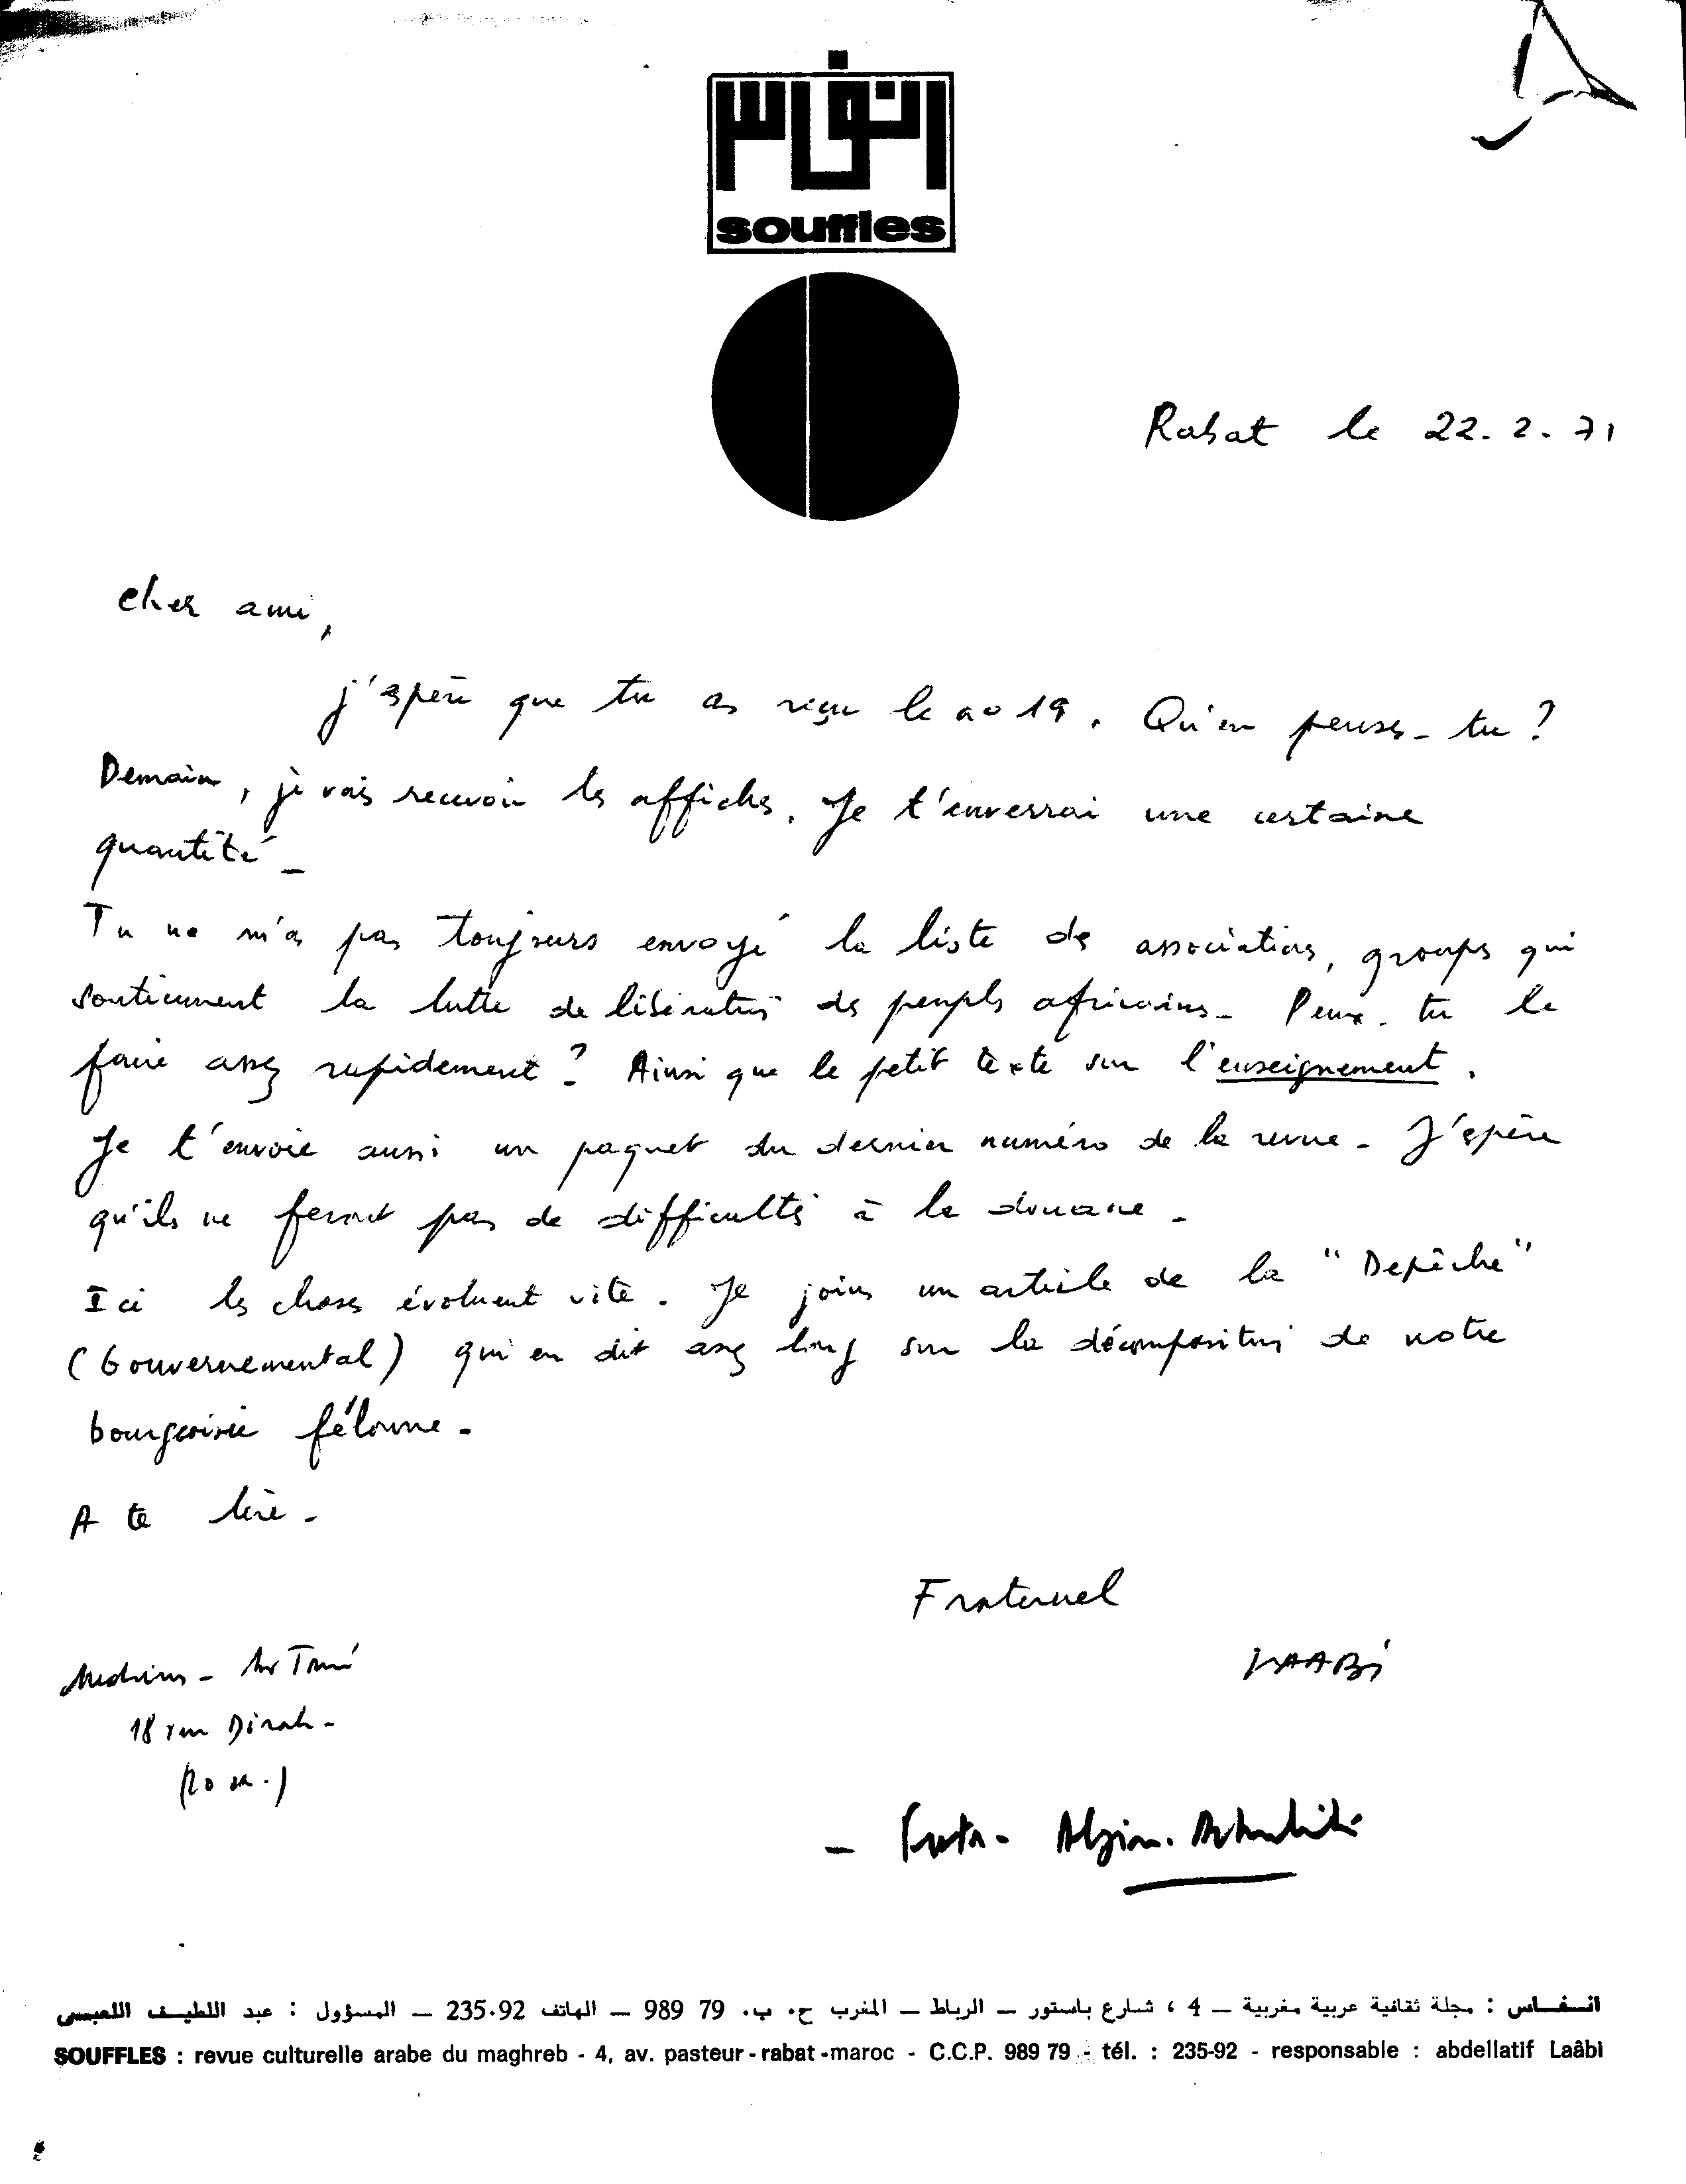 انفاس
souffles
Rabat le 22.2.71
cher ami,
j'espère que tu as reçu le no 19. Qu'en penses-tu ?
Demain, je vais recevoir les affiches. Je t'enverrai une certaine
quantité -
Tu ne m'as pas toujours envoyé la liste des associations, groupes qui
soutiennent la lutte de libération des peuples africains - Peux-tu le
faire assez rapidement ? Ainsi que le petit texte sur l'enseignement.
Je t'envoie aussi un paquet du dernier numéro de la revue - J'espère
qu'ils ne feront pas de difficultés à la douane -
Ici les choses évoluent vite. Je joins un article de la "Depêche"
(Gouvernemental) qui en dit assez long sur la décomposition de notre
bourgeoisie félonne -
A te lire -
Fraternel
LAABI
18 rue
انـفـاس : مجلة ثقافية عربية مغربية – 4 ، شارع باستور – الرباط – المغرب ح. ب. 79 989 – الهاتف 235.92 – المسؤول : عبد اللطيف اللعبي
SOUFFLES : revue culturelle arabe du maghreb - 4, av. pasteur - rabat - maroc - C.C.P. 989 79 - tél. : 235-92 - responsable : abdellatif Laâbi